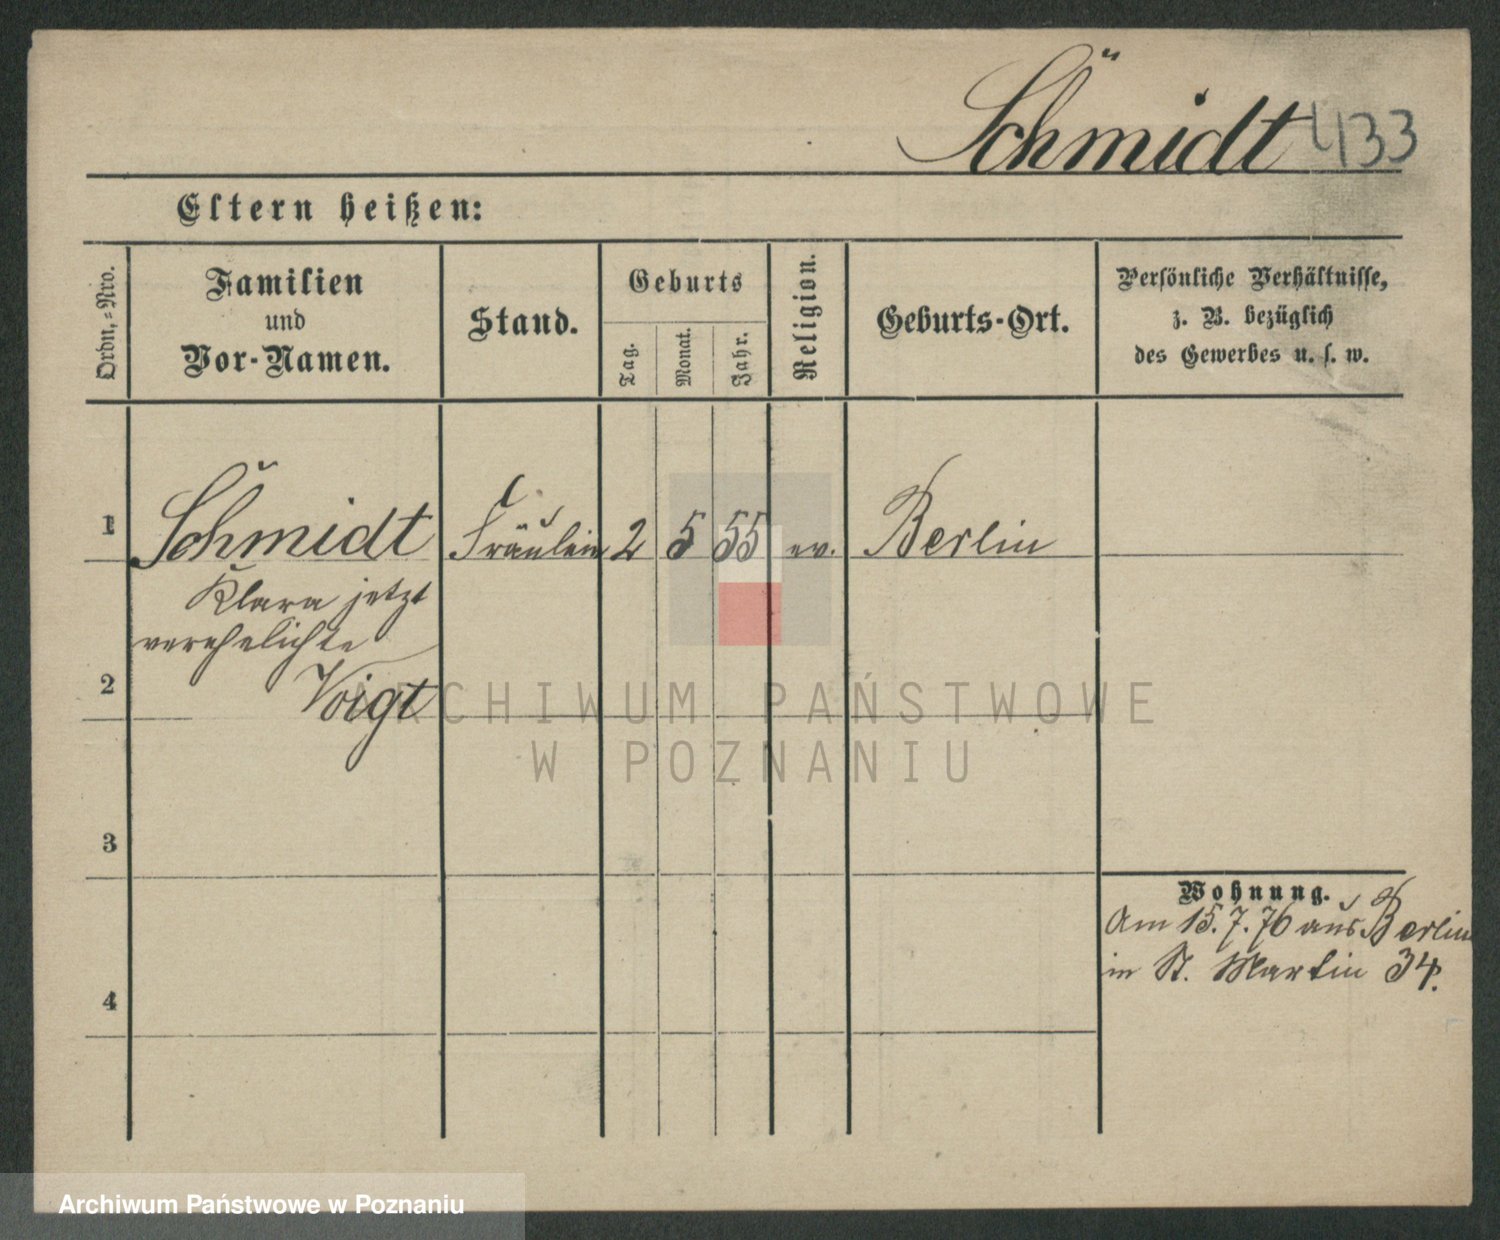 Schmidt 433
Eltern heißen:
Ordn.-Nro.
Familien
und
Vor-Namen.
Stand.
Geburts
Tag.
Monat.
Jahr.
Religion.
Geburts-Ort.
Persönliche Verhältnisse,
z. B. bezüglich
des Gewerbes u. s. w.
1 Schmidt Fräulein 2 5 55 ev. Berlin
Klara jetzt
verehelichte
2 Voigt
ARCHIWUM PAŃSTWOWE
W POZNANIU
3
Wohnung.
Am 15.7.76 aus Berlin
in St. Martin 34.
4
Archiwum Państwowe w Poznaniu